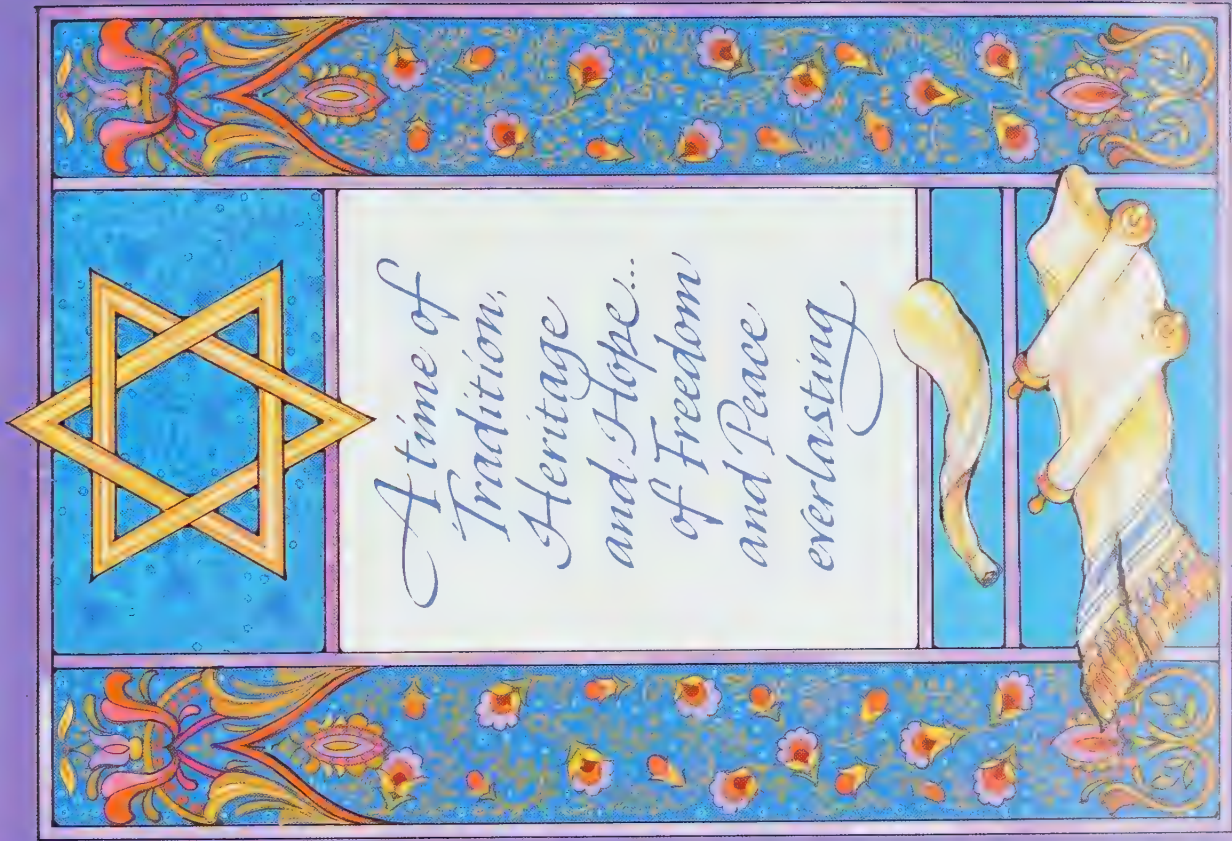 A time of
Tradition,
Heritage
and Hope...
of Freedom
and Peace
everlasting